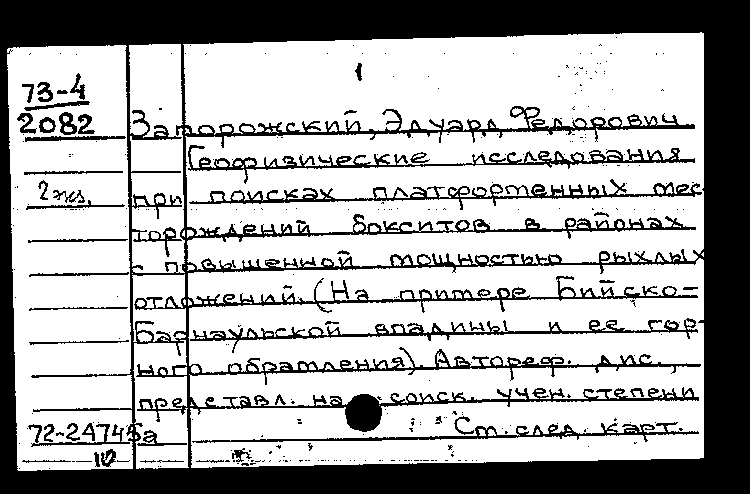 1
73-4
2082 Запорожский, Эдуард Федорович
Геофизические исследования
2 экз. при поисках платформенных мес-
торождений бокситов в районах
с повышенной мощностью рыхлых
отложений. (На примере Бийско-
Барнаульской впадины и ее гор-
ного обрамления). Автореф. дис.,
представл. на соиск. учен. степени
72-24745а Ст. след. карт.